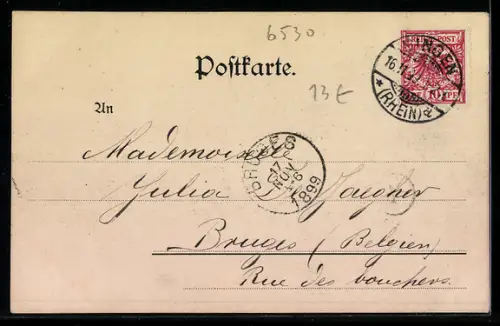 6530
Postkarte.
13£
An
REICHSPOST
10 PF
BINGEN
16.11.
* (RHEIN) *
BRUGES
17
NOV
16
1899
Mademoiselle
Julia De Jaegher
Bruges (Belgien)
Rue des bouchers.